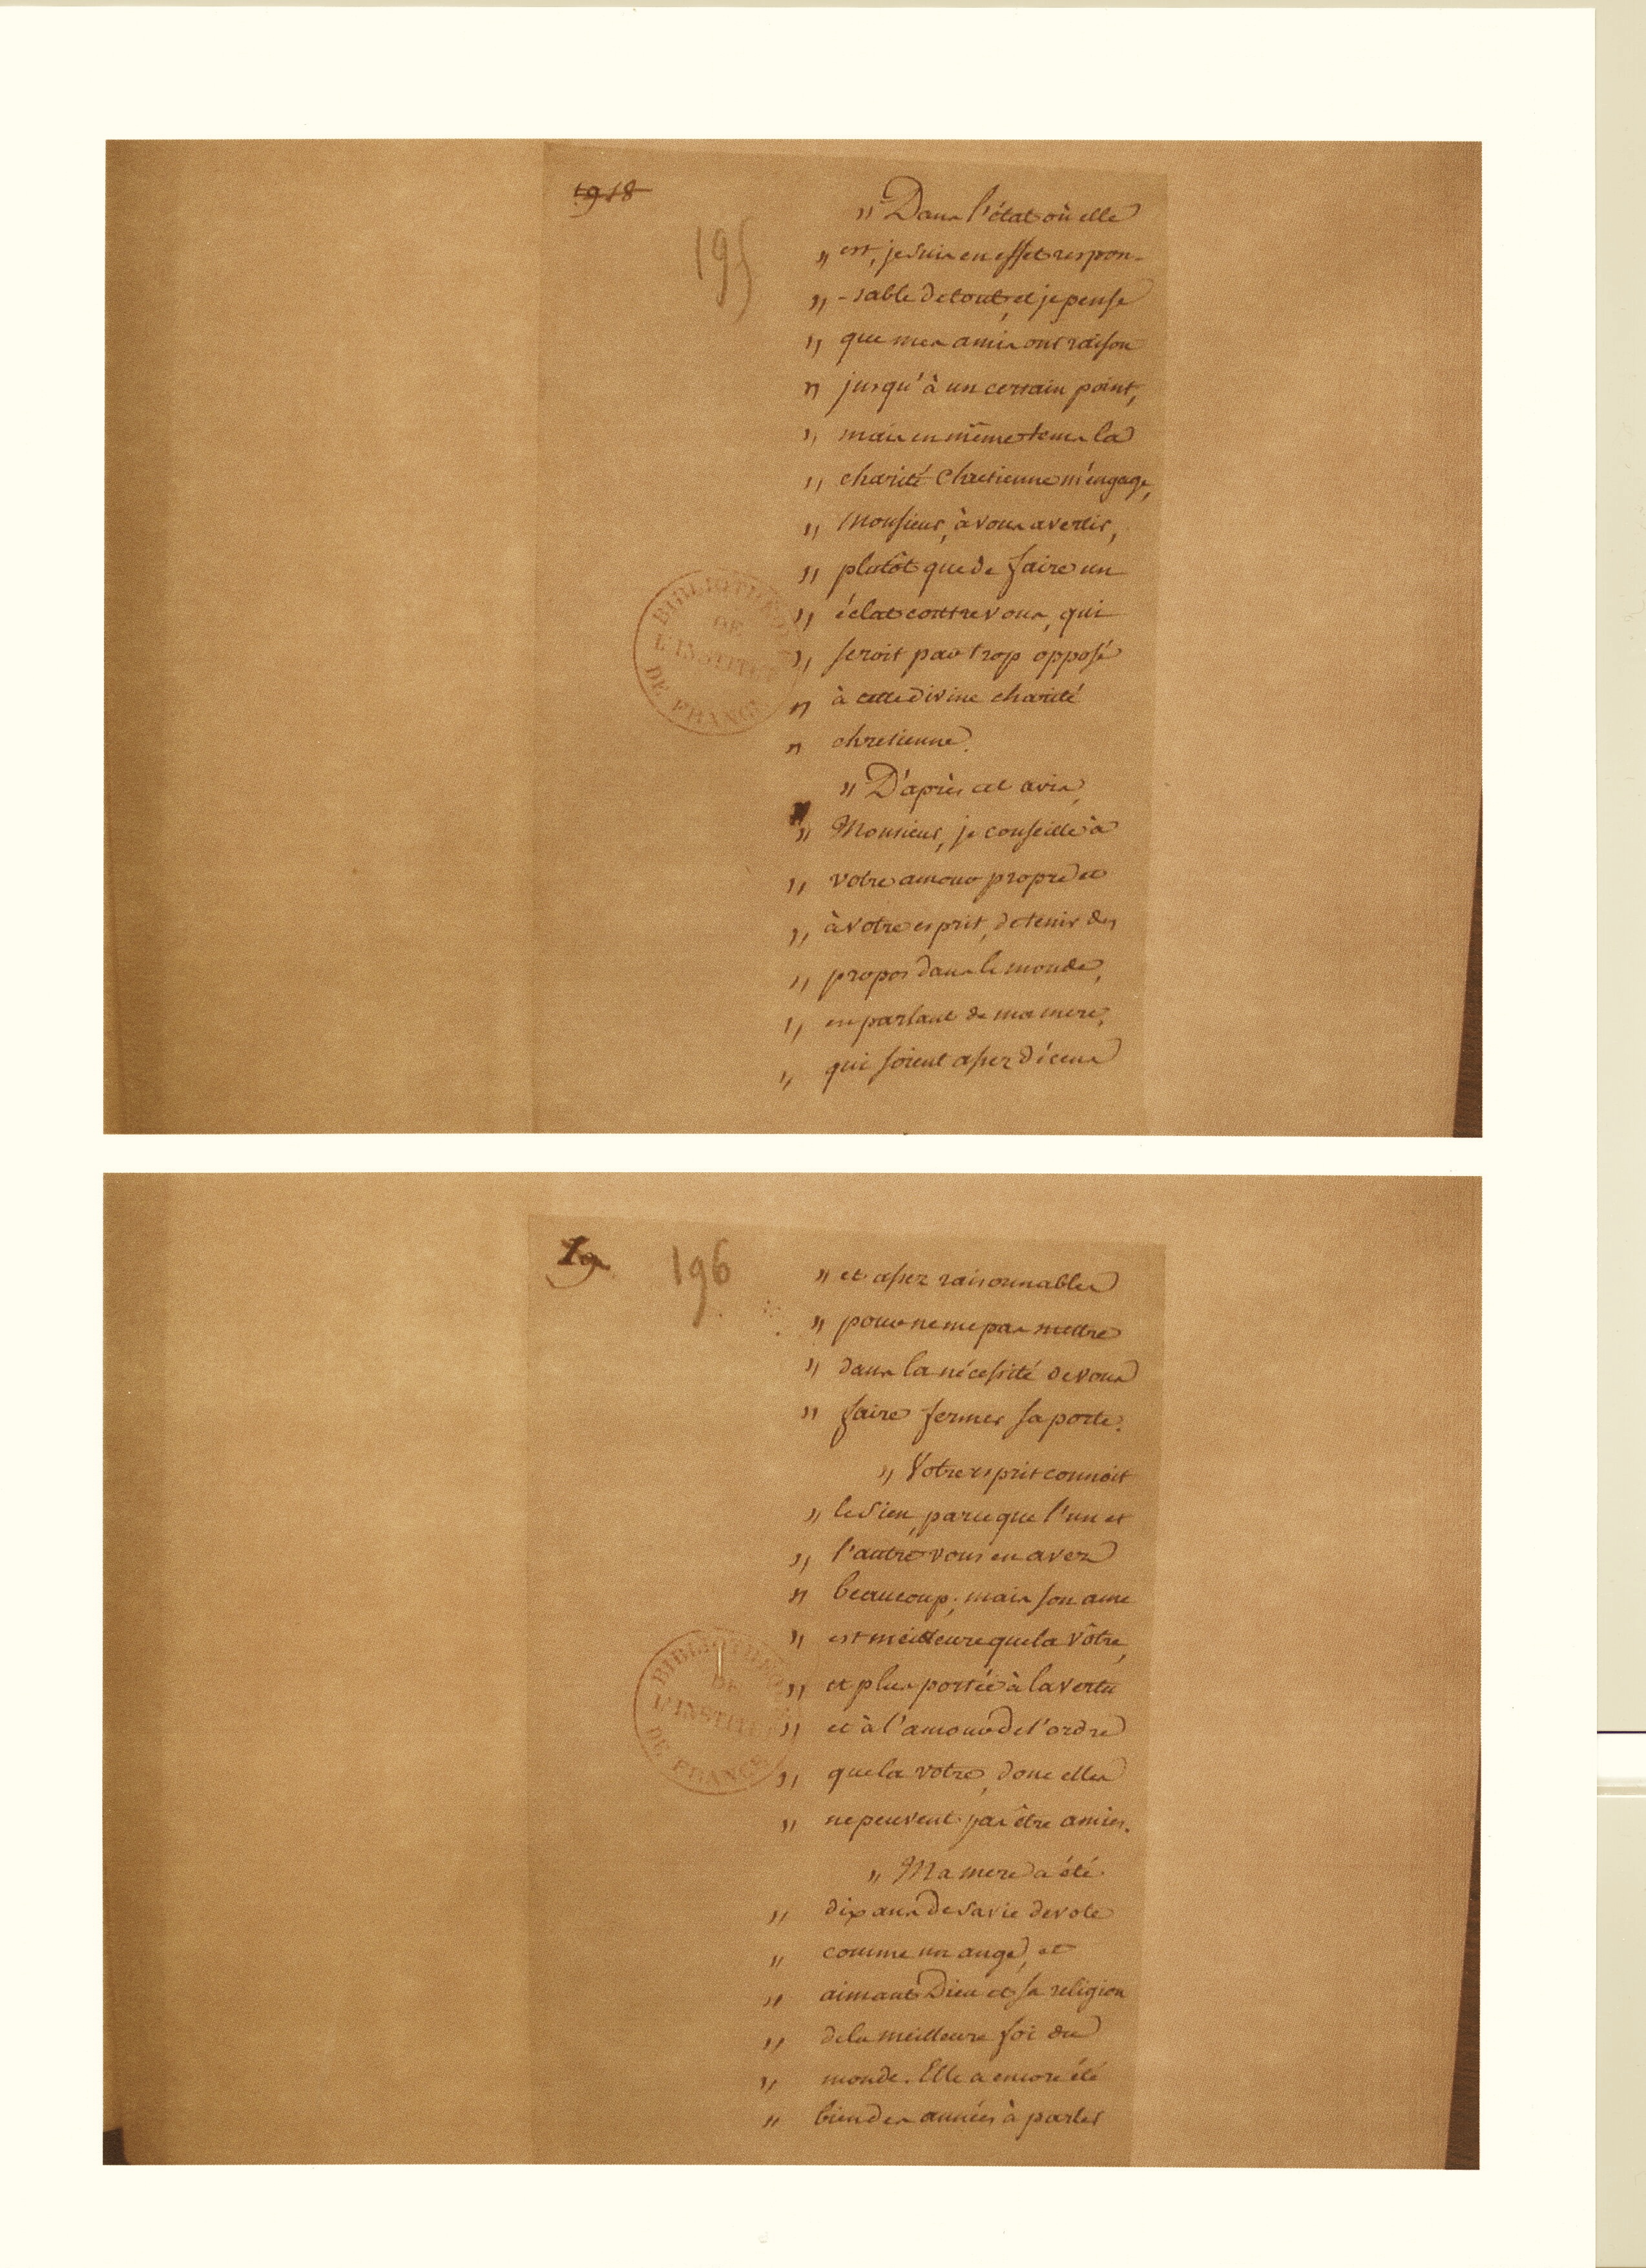 1918
195
„ Dans l'état où elle
„ est, je suis en effet respon-
„ -sable de tout, et je pense
„ que mes amis ont raison
„ jusqu'à un certain point,
„ mais en même tems la
„ charité Chretienne m'engage,
„ Monsieur, à vous avertir,
„ plutôt que de faire un
„ éclat contre vous, qui
„ seroit par trop opposé
„ à cette divine charité
„ chretienne.
„ D'après cet avis,
„ Monsieur, je conseille à
„ votre amour propre et
„ à votre esprit, de tenir des
„ propos dans le monde,
„ en parlant de ma mere,
„ qui soient assez décens
BIBLIOTHÈQUE
DE
L'INSTITUT
DE FRANCE
19
196
„ et assez raisonnables
„ pour ne me pas mettre
„ dans la nécessité de vous
„ faire fermer sa porte.
„ Votre esprit connoit
„ le sien, parce que l'un et
„ l'autre vous en avez
„ beaucoup; mais son ame
„ est meilleure que la vôtre,
„ et plus portée à la vertu
„ et à l'amour de l'ordre
„ que la votre, donc elles
„ ne peuvent pas être amies.
„ Ma mere a été
„ dix ans de sa vie devote
„ comme un ange, et
„ aimant Dieu et sa religion
„ de la meilleure foi du
„ monde. Elle a encore été
„ bien des années à parler
BIBLIOTHÈQUE
DE
L'INSTITUT
DE FRANCE